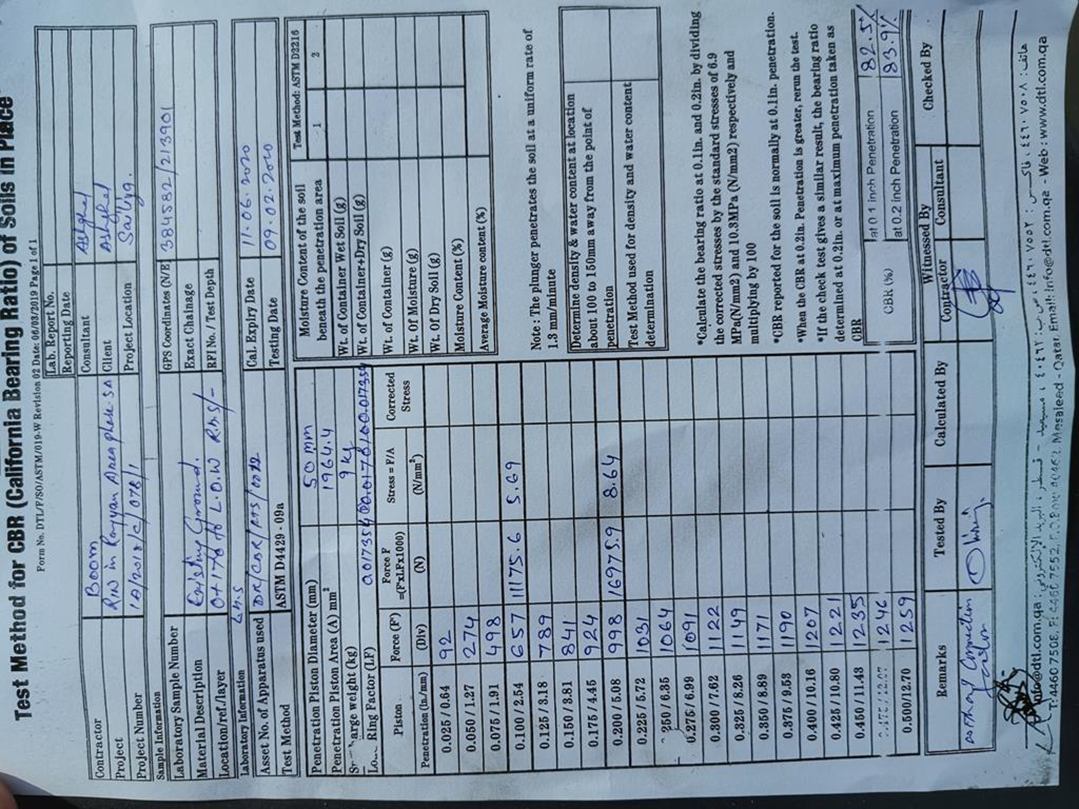 Test Method for CBR (California Bearing Ratio) of Soils in Place
Form No. DTL/F/SO/ASTM/019-W Revision 02 Date: 06/03/2019 Page 1 of 1
Lab. Report No.
Reporting Date
Contractor Boom Consultant Ashghal
Project R/W in Rayyan Area phase-Client Ashghal
Project Number Project Location
Sample Information
Laboratory Sample Number GPS Coordinates (N/E) 384582/213901
Material Description Existing Ground. Exact Chainage
Location/ref./layer L.O.W R.H.S/- RFI No. / Test Depth
Laboratory Information L.H.S
Asset No. of Apparatus used Cal. Expiry Date 11.06.2020
Test Method ASTM D4429 - 09a Testing Date 09.02.2020
Penetration Piston Diameter (mm) 50mm
Penetration Piston Area (A) mm² 1964.4
arge weight (kg) 9 kg
Ring Factor (LF)
Piston Penetration (In./mm) Force (F) (Div) Force F =(F'xLFx1000) (N) Stress = F/A (N/mm²) Corrected Stress
0.025 / 0.64 92
0.050 / 1.27 274
0.075 / 1.91 498
0.100 / 2.54 657 11175.6 5.69
0.125 / 3.18 789
0.150 / 3.81 841
0.175 / 4.45 924
0.200 / 5.08 998 16975.9 8.64
0.225 / 5.72 1031
250 / 6.35 1064
0.275 / 6.99 1091
0.300 / 7.62 1122
0.325 / 8.26 1149
0.350 / 8.89 1171
0.375 / 9.53 1190
0.400 / 10.16 1207
0.425 / 10.80 1221
0.450 / 11.43 1235
1246
0.500/12.70 1259
Moisture Content of the soil beneath the penetration area Test Method: ASTM D2216
1 2
Wt. of Container Wet Soil (g)
Wt. of Container+Dry Soil (g)
Wt. of Container (g)
Wt. Of Moisture (g)
Wt. Of Dry Soil (g)
Moisture Content (%)
Average Moisture content (%)
Note : The plunger penetrates the soil at a uniform rate of
1.3 mm/minute
Determine density & water content at location
about 100 to 150mm away from the point of
penetration
Test Method used for density and water content
determination
*Calculate the bearing ratio at 0.1in. and 0.2in. by dividing
the corrected stresses by the standard stresses of 6.9
MPa(N/mm2) and 10.3MPa (N/mm2) respectively and
multiplying by 100
*CBR reported for the soil is normally at 0.1in. penetration.
*When the CBR at 0.2in. Penetration is greater, rerun the test.
*If the check test gives a similar result, the bearing ratio
determined at 0.2in. or at maximum penetration taken as
CBR
CBR (%) at 0 1 inch Penetration 82.5%
at 0.2 inch Penetration 83.9%
Remarks Tested By Calculated By Witnessed By Checked By
Contractor Consultant
Correction
info@dtl.com.qa
T: 4460 7508, F: 4460 7552, Mesaieed - Qatar. Email: info@dtl.com.qa - Web : www.dtl.com.qa